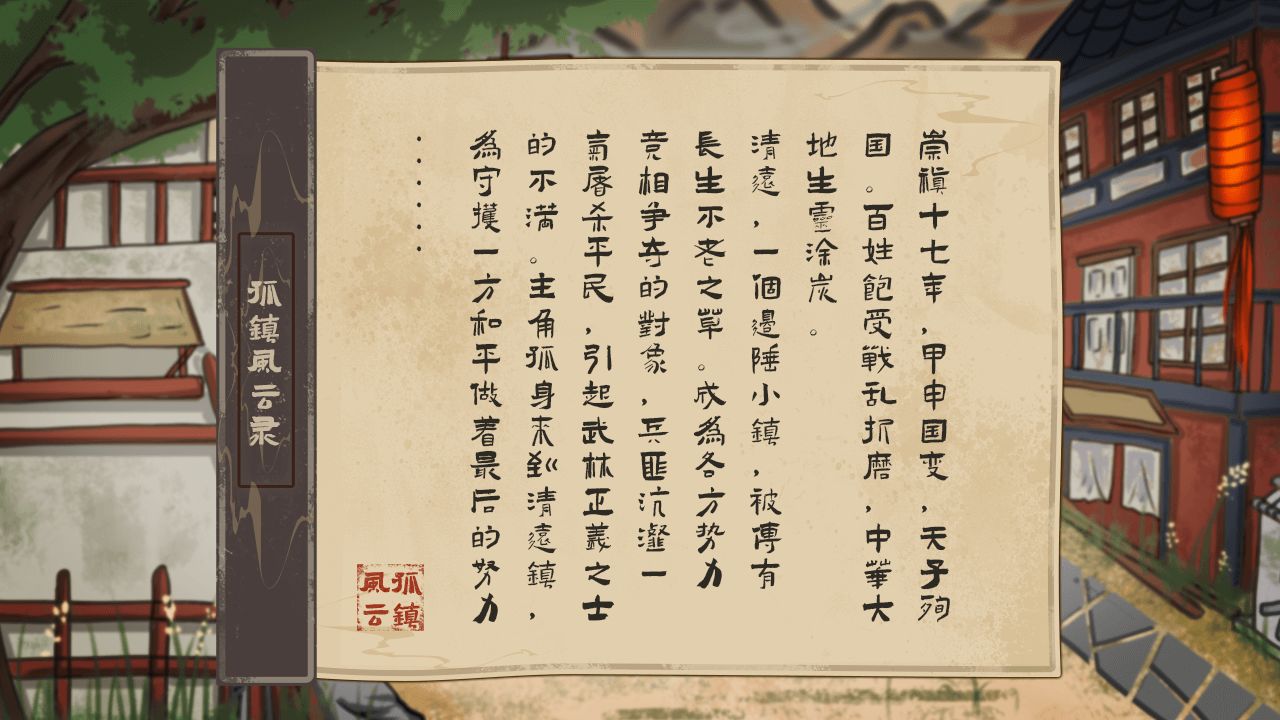 崇禎十七年,甲申国变,天子殉
国。百姓飽受戰乱折磨,中華大
地生靈涂炭。
清遠,一個邊陲小鎮,被傳有
長生不老之草。成為各方势力
竞相争夺的對象,兵匪沆瀣一
氣屠杀平民,引起武林正義之士
的不满。主角孤身来到清遠鎮,
為守護一方和平做着最后的努力
······
孤鎮風云录
孤鎮
風云